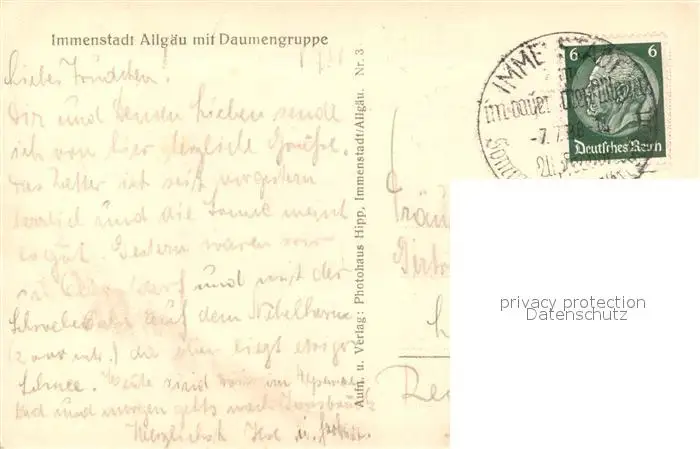 Immenstadt Allgäu mit Daumengruppe
Liebes Trudchen!
Dir und Deinen Lieben sende
ich von hier herzliche Grüsse.
Das Wetter ist seit vorgestern
herrlich und die Sonne meint
es gut. Gestern waren wir
in Oberstdorf und mit der
Schwebebahn auf dem Nebelhorn
(2000 mtr.) da oben liegt ewiger
Schnee. Heute sind wir im Alpsee
Bad und morgen gehts nach Innsbruck
Herzlichst
Aufn. u. Verlag: Photohaus Hipp, Immenstadt/Allgäu. Nr. 3
IMMENSTADT
-7.7.38
6 6
Deutsches Reich
Fräu
privacy protection
Datenschutz